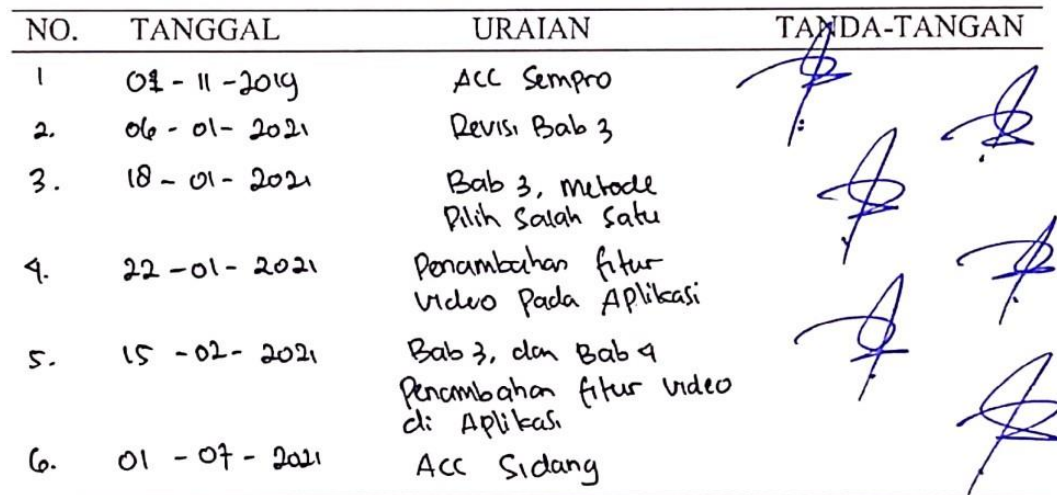 NO. TANGGAL URAIAN TANDA-TANGAN
1 01 - 11 - 2019 ACC Sempro
2. 06 - 01 - 2021 Revisi Bab 3
3. 18 - 01 - 2021 Bab 3, Metode
Pilih Salah Satu
4. 22 - 01 - 2021 Penambahan fitur
video Pada Aplikasi
5. 15 - 02 - 2021 Bab 3, dan Bab 4
Penambahan fitur video
di Aplikasi
6. 01 - 07 - 2021 ACC Sidang